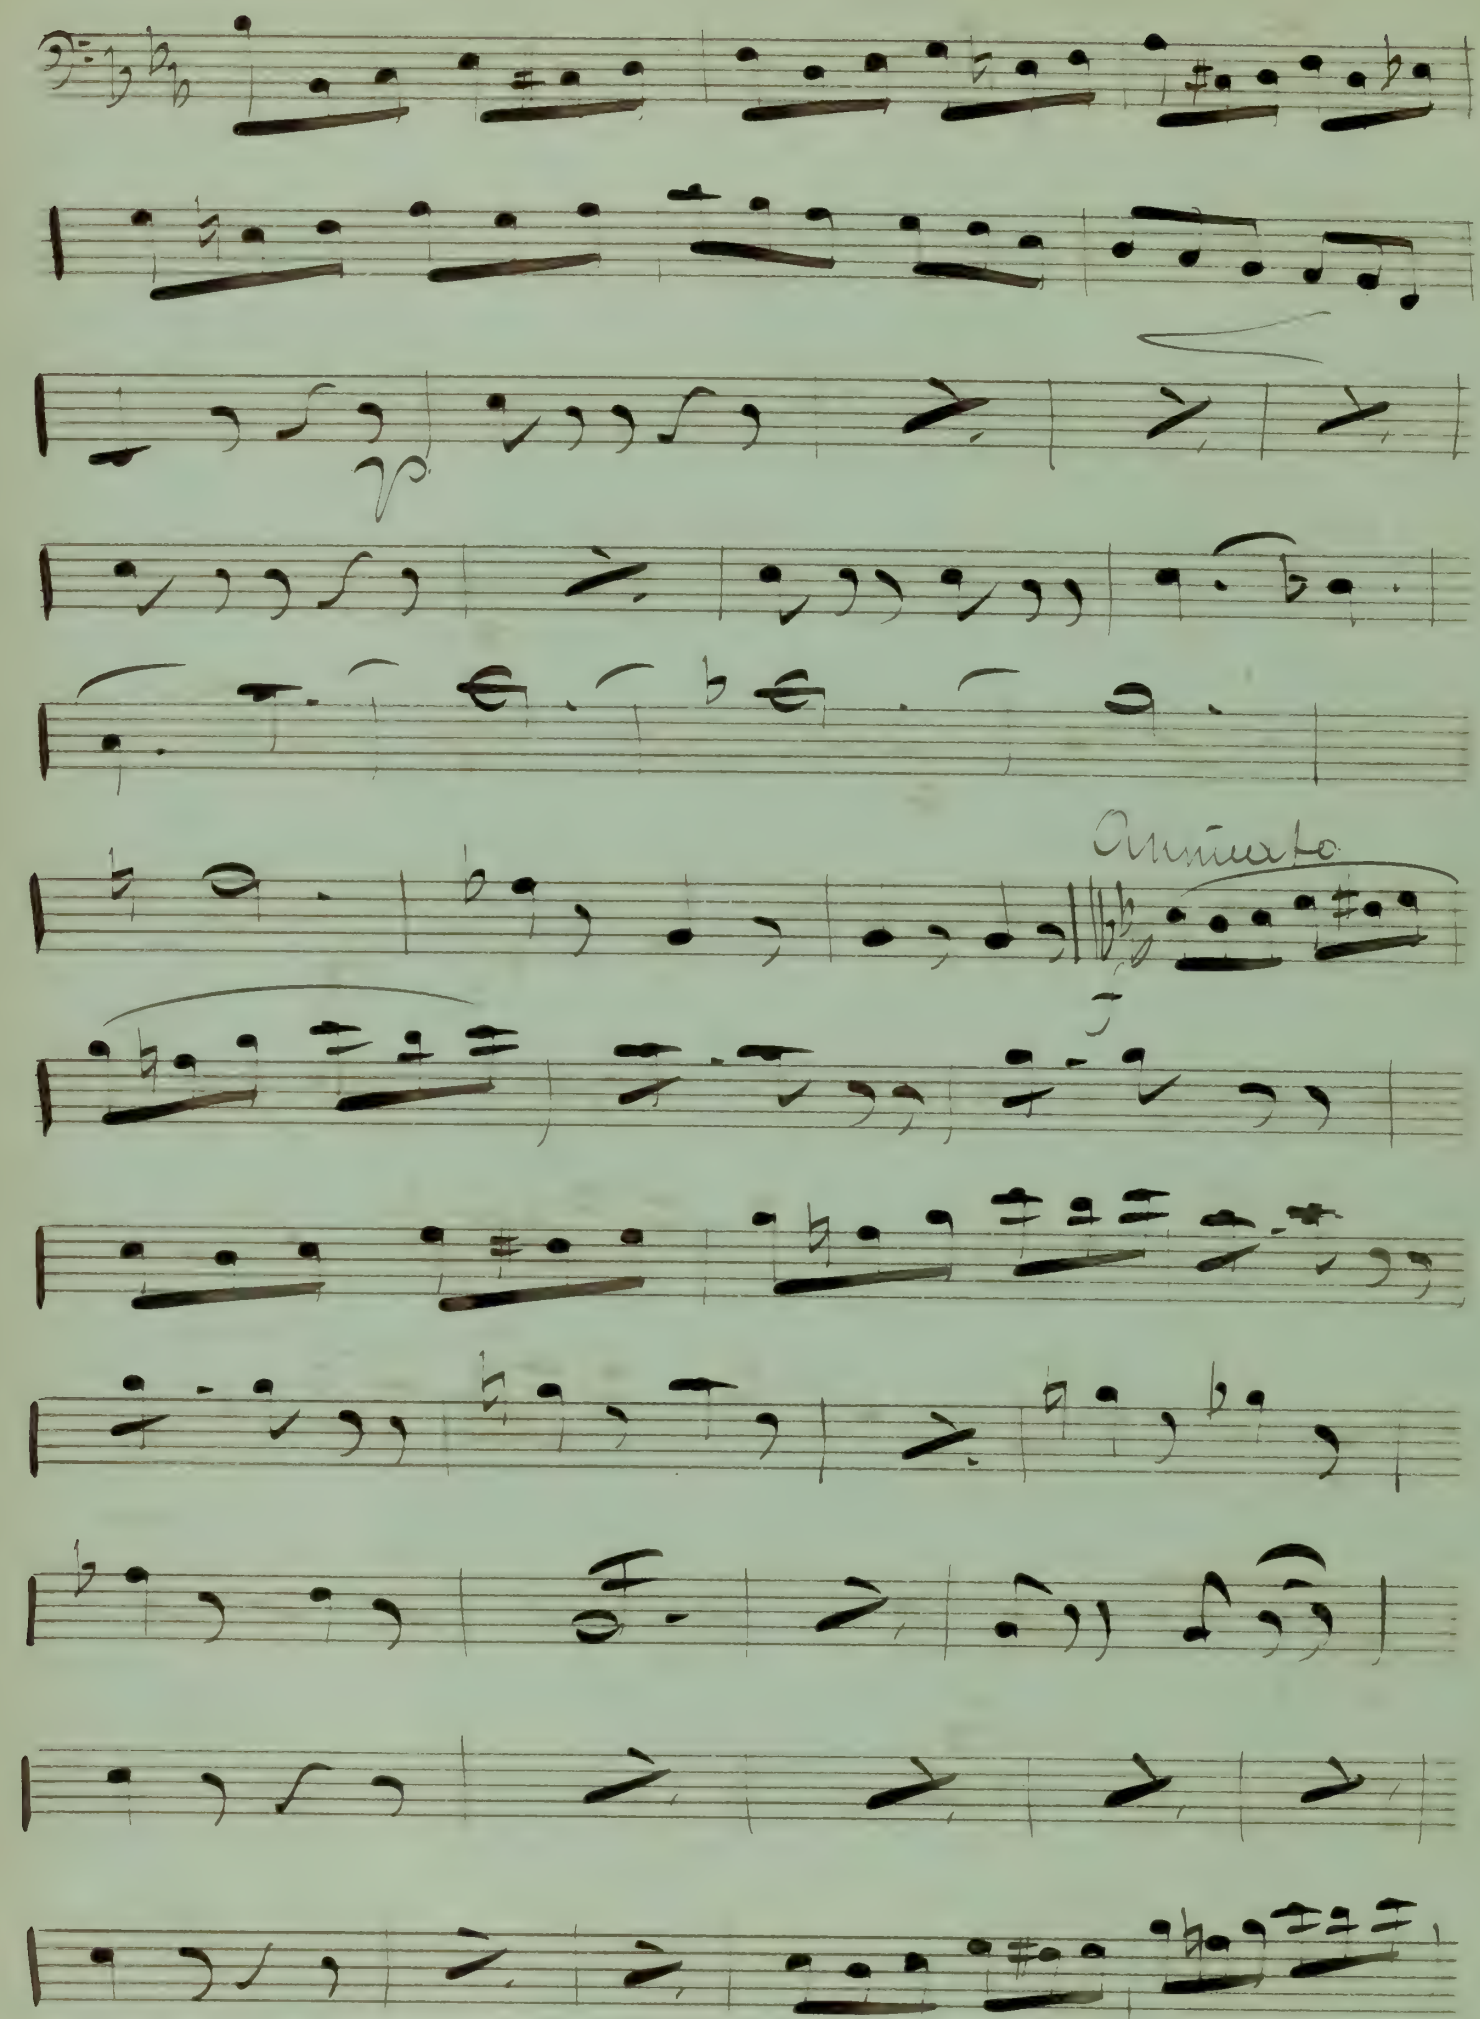 p
Animato